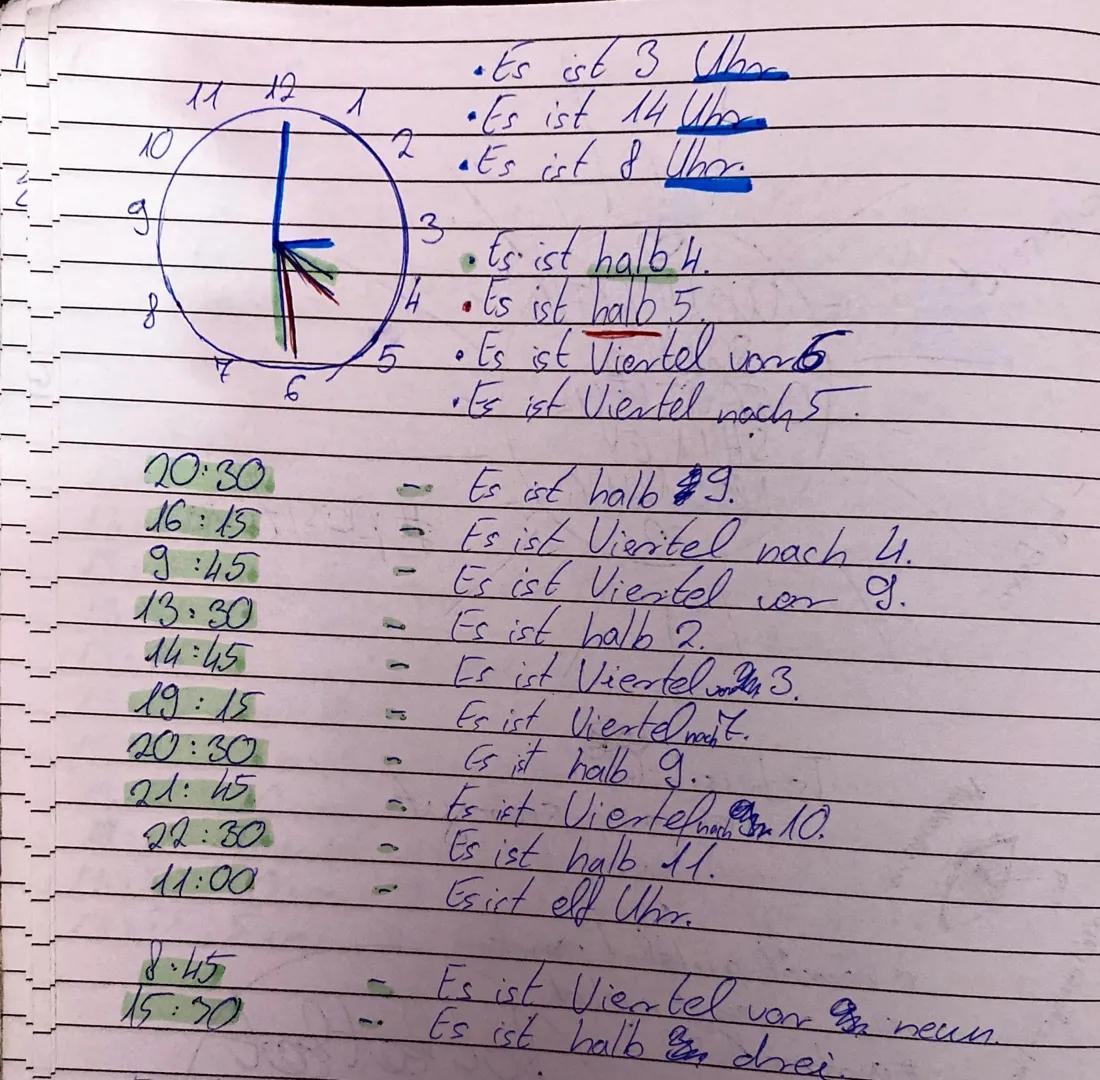 11 12 1
10 2
9 3
8 4
7 5
6
• Es ist 3 Uhr
• Es ist 14 Uhr
• Es ist 8 Uhr.
• Es ist halb 4.
• Es ist halb 5.
• Es ist Viertel vor 6
• Es ist Viertel nach 5.
20:30 - Es ist halb 9.
16:15 - Es ist Viertel nach 4.
9:45 - Es ist Viertel vor 9.
13:30 - Es ist halb 2.
14:45 - Es ist Viertel vor 3.
19:15 - Es ist Viertel nach 7.
20:30 - Es ist halb 9.
21:45 - Es ist Viertel nach 10.
22:30 - Es ist halb 11.
11:00 - Es ist elf Uhr.
8:45 - Es ist Viertel vor neun.
15:30 - Es ist halb drei.